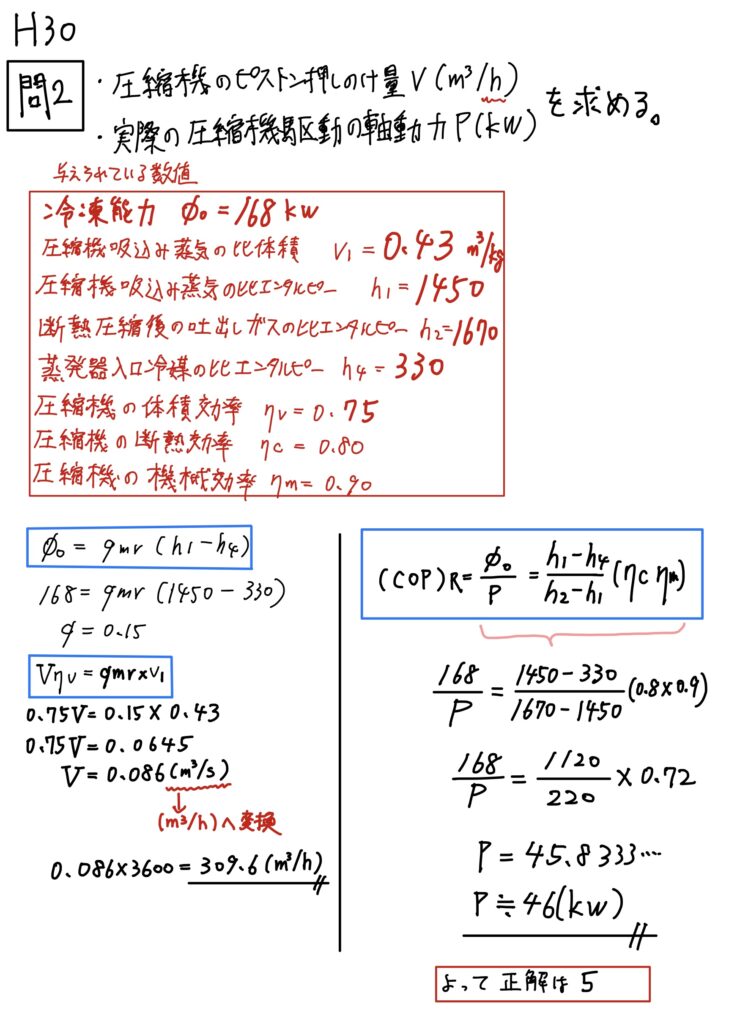 H30
問2
・圧縮機のピストン押しのけ量 V (m³/h)
・実際の圧縮機駆動の軸動力 P(kW)
を求める。
与えられている数値
冷凍能力 φ₀=168 kw
圧縮機吸込み蒸気の比体積 v₁=0.43 m³/kg
圧縮機吸込み蒸気の比エンタルピー h₁=1450
断熱圧縮後の吐出しガスの比エンタルピー h₂=1670
蒸発器入口冷媒の比エンタルピー h₄=330
圧縮機の体積効率 ηv=0.75
圧縮機の断熱効率 ηc=0.80
圧縮機の機械効率 ηm=0.90
φ₀ = qmr (h₁-h₄)
168 = qmr (1450-330)
q = 0.15
Vηv = qmr×v₁
0.75V = 0.15 × 0.43
0.75V = 0.0645
V = 0.086 (m³/s)
↓
(m³/h)へ変換
0.086×3600 = 309.6 (m³/h)
(COP)R = φ₀/P = (h₁-h₄)/(h₂-h₁) (ηc ηm)
168/P = (1450-330)/(1670-1450) (0.8×0.9)
168/P = 1120/220 × 0.72
P = 45.8333…
P ≒ 46(kw)
よって 正解は 5